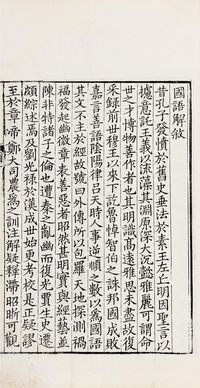 國語解敘
昔孔子發憤於舊史垂法於素王左丘明因聖言以
攄意託王義以流藻其淵原深大沈懿雅麗可謂命
世之才博物善作者也其明識高遠雅思未盡故復
采錄前世穆王以來下訖魯悼智伯之誅邦國成敗
嘉言善語陰陽律呂天時人事逆順之數以為國語
其文不主於經故號曰外傳所以包羅天地探測禍
福發起幽微章表善惡者昭然甚明實與經藝並
陳非特諸子之倫也遭秦之亂幽而復光賈生史遷
頗綜述焉及劉光祿於漢成世始更考校是正疑謬
至於章帝鄭大司農為之訓注解疑釋滯昭晰可觀